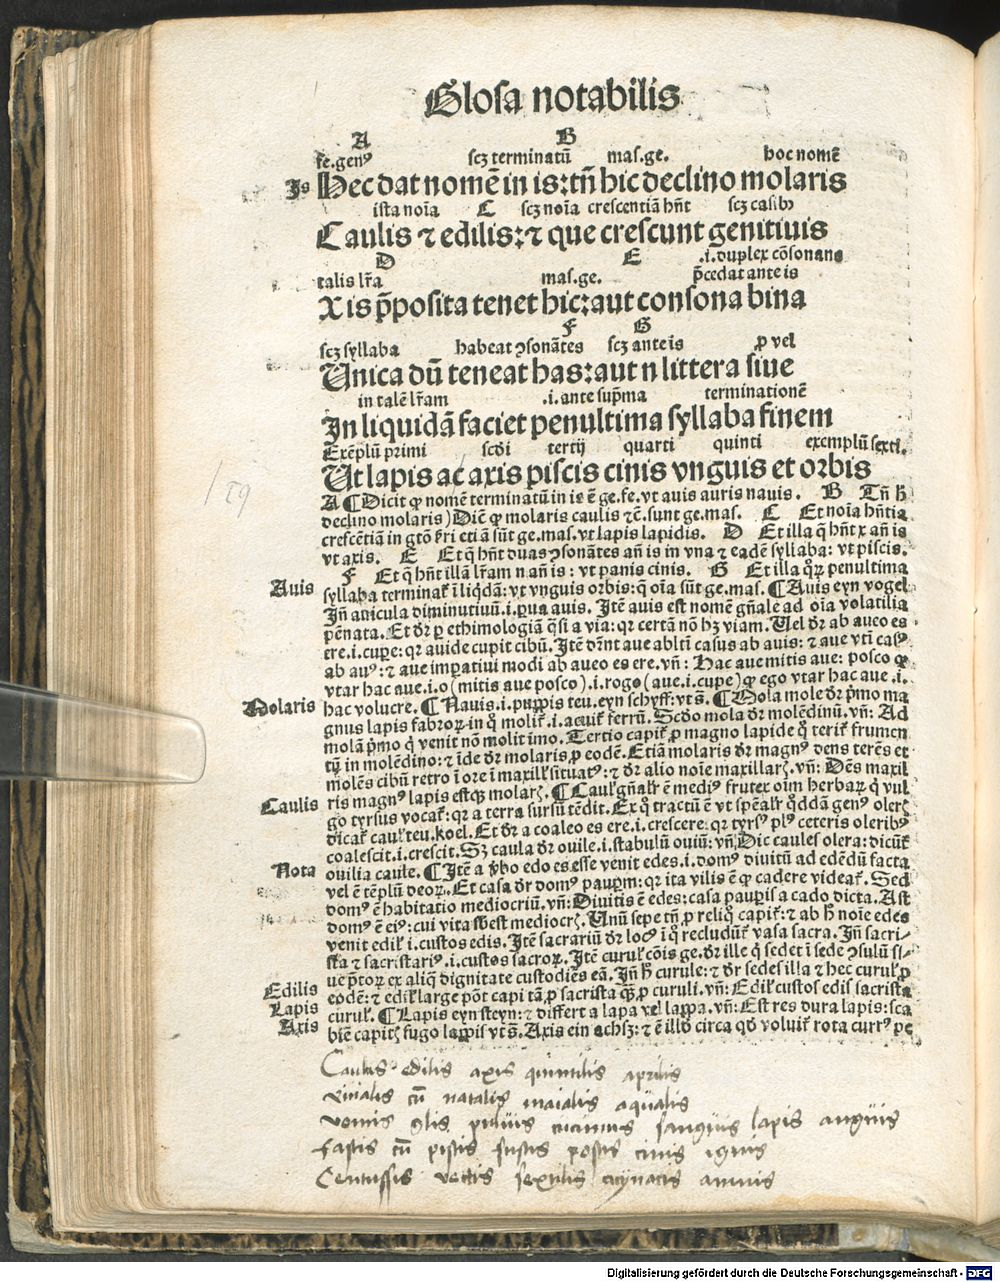 Glosa notabilis
A B
fe.genꝰ scꝫ terminatū mas.ge. hoc nomē
Is Hec dat nomē in is: tñ hic declino molaris
ista noīa C scꝫ noīa crescentiā hñt scꝫ casibꝰ
Caulis ⁊ edilis: ⁊ que crescunt genitiuis
D E .i. duplex cōsonans
talis lr̄a mas.ge. p̄cedat ante is
X is p̄posita tenet hic: aut consona bina
F G
scꝫ syllaba habeat ꝯsonātes scꝫ ante is ꝓ vel
Unica dū teneat has: aut n littera siue
in talē lr̄am .i. ante sup̄ma terminationē
In liquidā faciet penultima syllaba finem
Exēplū primi scd̄i tertij quarti quinti exemplū sexti.
Ut lapis ac axis piscis cinis vnguis et orbis
A ¶ Dicit ꝙ nomē terminatū in is ē ge.fe. vt auis auris nauis. B Tñ h̄
declino molaris) Dic̄ ꝙ molaris caulis ⁊c̄. sunt ge.mas. C Et noīa hñtia
crescētiā in gtō etiā sūt ge.mas. vt lapis lapidis. D Et illa q̄ hñt x añ is
vt axis. E Et q̄ hñt duas ꝯsonātes añ is in vna ⁊ eadē syllaba: vt piscis.
F Et q̄ hñt illā lr̄am n añ is: vt panis cinis. G Et illa qꝝ penultima
Auis syllaba terminat̄ ī liqdā: vt vnguis orbis: q̄ oīa sūt ge.mas. ¶ Auis eyn vogel
Iñ auicula diminutiuū .i. pua auis. Itē auis est nomē gñale ad oīa volatilia
pēnata. Et dr̄ p ethimologiā q̄si a via: qr certā nō hꝫ viam. Uel dr̄ ab aueo es
ere .i. cupe: qr auide cupit cibū. Itē dr̄nt aue ablti casus ab auis: ⁊ aue vti casꝰ
ab auꝰ: ⁊ aue impatiui modi ab aueo es ere. vñ: Hac aue mitis aue: posco ꝙ
vtar hac aue .i. o (mitis aue posco) .i. rogo (aue .i. cupe) ꝙ ego vtar hac aue .i.
Molaris hac volucre. ¶ Nauis .i. puppis teu. eyn schyff: vt s̄. ¶ Mola mole dr̄ p̄mo ma
gnus lapis fabroꝝ in q̇ molit̄ .i. acuit̄ ferrū. Scd̄o mola dr̄ molēdinū. vñ: Ad
molā p̄mo q̇ venit nō molit imo. Tertio capit̄ ꝓ magno lapide q̇ terit̄ frumen
tū in molēdino: ⁊ īde dr̄ molaris ꝓ eodē. Etiā molaris dr̄ magnꝰ dens terēs et
molēs cibū retro ī ore ī maxill situatꝰ: ⁊ dr̄ alio noīe maxillaris. vñ: Dēs maxil
Caulis ris magnꝰ lapis estqꝫ molaris. ¶ Caulis gñalr̄ ē mediꝰ frutex oīm herbaꝝ q̇ vul
go tyrsus vocat̄: qr a terra sursū tēdit. Ex q̇ tractū ē vt spēalr̄ q̇ddā genꝰ oleris
dicat̄ caulis teu. koel. Et dr̄ a coaleo es ere .i. crescere: qr tyrsꝰ plꝰ ceteris oleribꝰ
coalescit .i. crescit. Sꝫ caula dr̄ ouile .i. stabulū ouiū: vñ. Dic caules olera: dicūt̄
Nota ouilia caule. ¶ Itē a ꝟbo edo es esse venit edes .i. domꝰ diuitū ad edēdū facta
vel ē tēplū deoꝝ. Et casa dr̄ domꝰ paupm: qr ita vilis ē ꝙ cadere videat̄. Sed
domꝰ ē habitatio mediocriū. vñ: Diuitis ē edes: casa paupis a cado dicta. Ast
domꝰ ē eiꝰ: cui vita subest mediocris. Unū sepe tñ ꝓ reliq̇ capit̄: ⁊ ab h̄ noīe edes
venit edilis .i. custos edis. Itē sacrariū dr̄ locꝰ ī q̇ recludūt̄ vasa sacra. Iñ sacri-
sta ⁊ sacristariꝰ .i. custos sacroꝝ. Itē curulis cōis ge. dr̄ ille q̇ sedet ī sede ꝯsulū si-
ue p̄toꝝ ex aliq̇ dignitate custodiēs eā. Iñ h̄ curule: ⁊ dr̄ sedes illa ⁊ hec curulis ꝓ
Edilis eodē: ⁊ edilis large pōt capi tā ꝓ sacrista q̄ꝫ ꝓ curuli. vñ: Edilis custos edis sacrista
Lapis curulis. ¶ Lapis eyn steyn: ⁊ differt a lapa vel lappa. vñ: Est res dura lapis: sca
Axis biēm capitis fugo lappis vt s̄. Axis ein achsz: ⁊ ē illd̄ circa qd̄ voluit̄ rota currꝰ pe
159
Caulis edilis axis quintilis aprilis
vicialis cū natalis maialis aqualis
vomis glis puluis cucumis sanguis lapis anguis
Fastis cū pistis fustis postis cinis ignis
Centussis vectis sextilis amnis
Digitalisierung gefördert durch die Deutsche Forschungsgemeinschaft - DFG